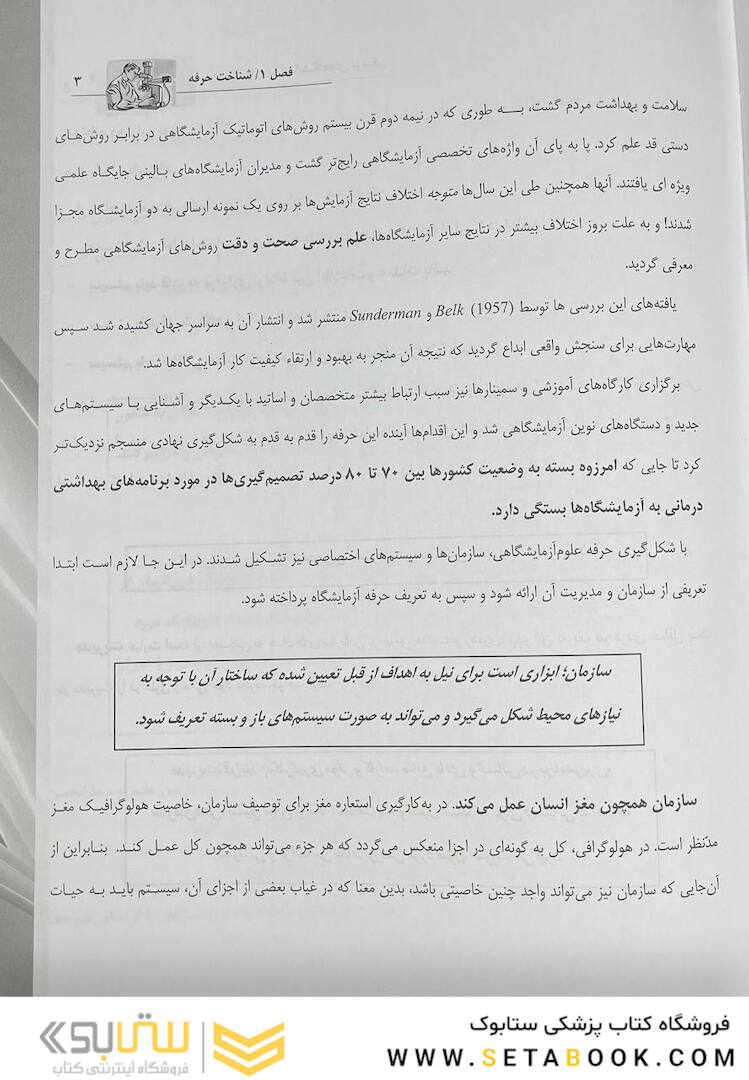 فصل ۱/ شناخت حرفه ۳
سلامت و بهداشت مردم گشت، بـــه طوری که در نیمه دوم قرن بیستم روش‌های اتوماتیک آزمایشگاهی در برابر روش‌های
دستی قد علم کرد. پا به پای آن واژه‌های تخصصی آزمایشگاهی رایج‌تر گشت و مدیران آزمایشگاه‌های بالینی جایگاه علمی
ویژه ای یافتند. آنها همچنین طی این سال‌ها متوجه اختلاف نتایج آزمایش‌ها بر روی یک نمونه ارسالی به دو آزمایشگاه مجزا
شدند! و به علت بروز اختلاف بیشتر در نتایج سایر آزمایشگاه‌ها، علم بررسی صحت و دقت روش‌های آزمایشگاهی مطرح و
معرفی گردید.
یافته‌های این بررسی ها توسط Belk (1957) و Sunderman منتشر شد و انتشار آن به سراسر جهان کشیده شد سپس
مهارت‌هایی برای سنجش واقعی ابداع گردید که نتیجه آن منجر به بهبود و ارتقاء کیفیت کار آزمایشگاه‌ها شد.
برگزاری کارگاه‌های آموزشی و سمینارها نیز سبب ارتباط بیشتر متخصصان و اساتید با یکدیگر و آشنایی با سیستم‌های
جدید و دستگاه‌های نوین آزمایشگاهی شد و این اقدام‌ها آینده این حرفه را قدم به قدم به شکل‌گیری نهادی منسجم نزدیک‌تر
کرد تا جایی که امرزوه بسته به وضعیت کشورها بین ۷۰ تا ۸۰ درصد تصمیم‌گیری‌ها در مورد برنامه‌های بهداشتی
درمانی به آزمایشگاه‌ها بستگی دارد.
با شکل‌گیری حرفه علوم‌آزمایشگاهی، سازمان‌ها و سیستم‌های اختصاصی نیز تشکیل شدند. در این جا لازم است ابتدا
تعریفی از سازمان و مدیریت آن ارائه شود و سپس به تعریف حرفه آزمایشگاه پرداخته شود.
سازمان؛ ابزاری است برای نیل به اهداف از قبل تعیین شده که ساختار آن با توجه به
نیازهای محیط شکل می‌گیرد و می‌تواند به صورت سیستم‌های باز و بسته تعریف شود.
سازمان همچون مغز انسان عمل می‌کند. در به‌کارگیری استعاره مغز برای توصیف سازمان، خاصیت هولوگرافیک مغز
مدّنظر است. در هولوگرافی، کل به گونه‌ای در اجزا منعکس می‌گردد که هر جزء می‌تواند همچون کل عمل کند. بنابراین از
آن‌جایی که سازمان نیز می‌تواند واجد چنین خاصیتی باشد، بدین معنا که در غیاب بعضی از اجزای آن، سیستم باید به حیات
فروشگاه کتاب پزشکی ستابوک
WWW.SETABOOK.COM
ستابوک
فروشگاه اینترنتی کتاب